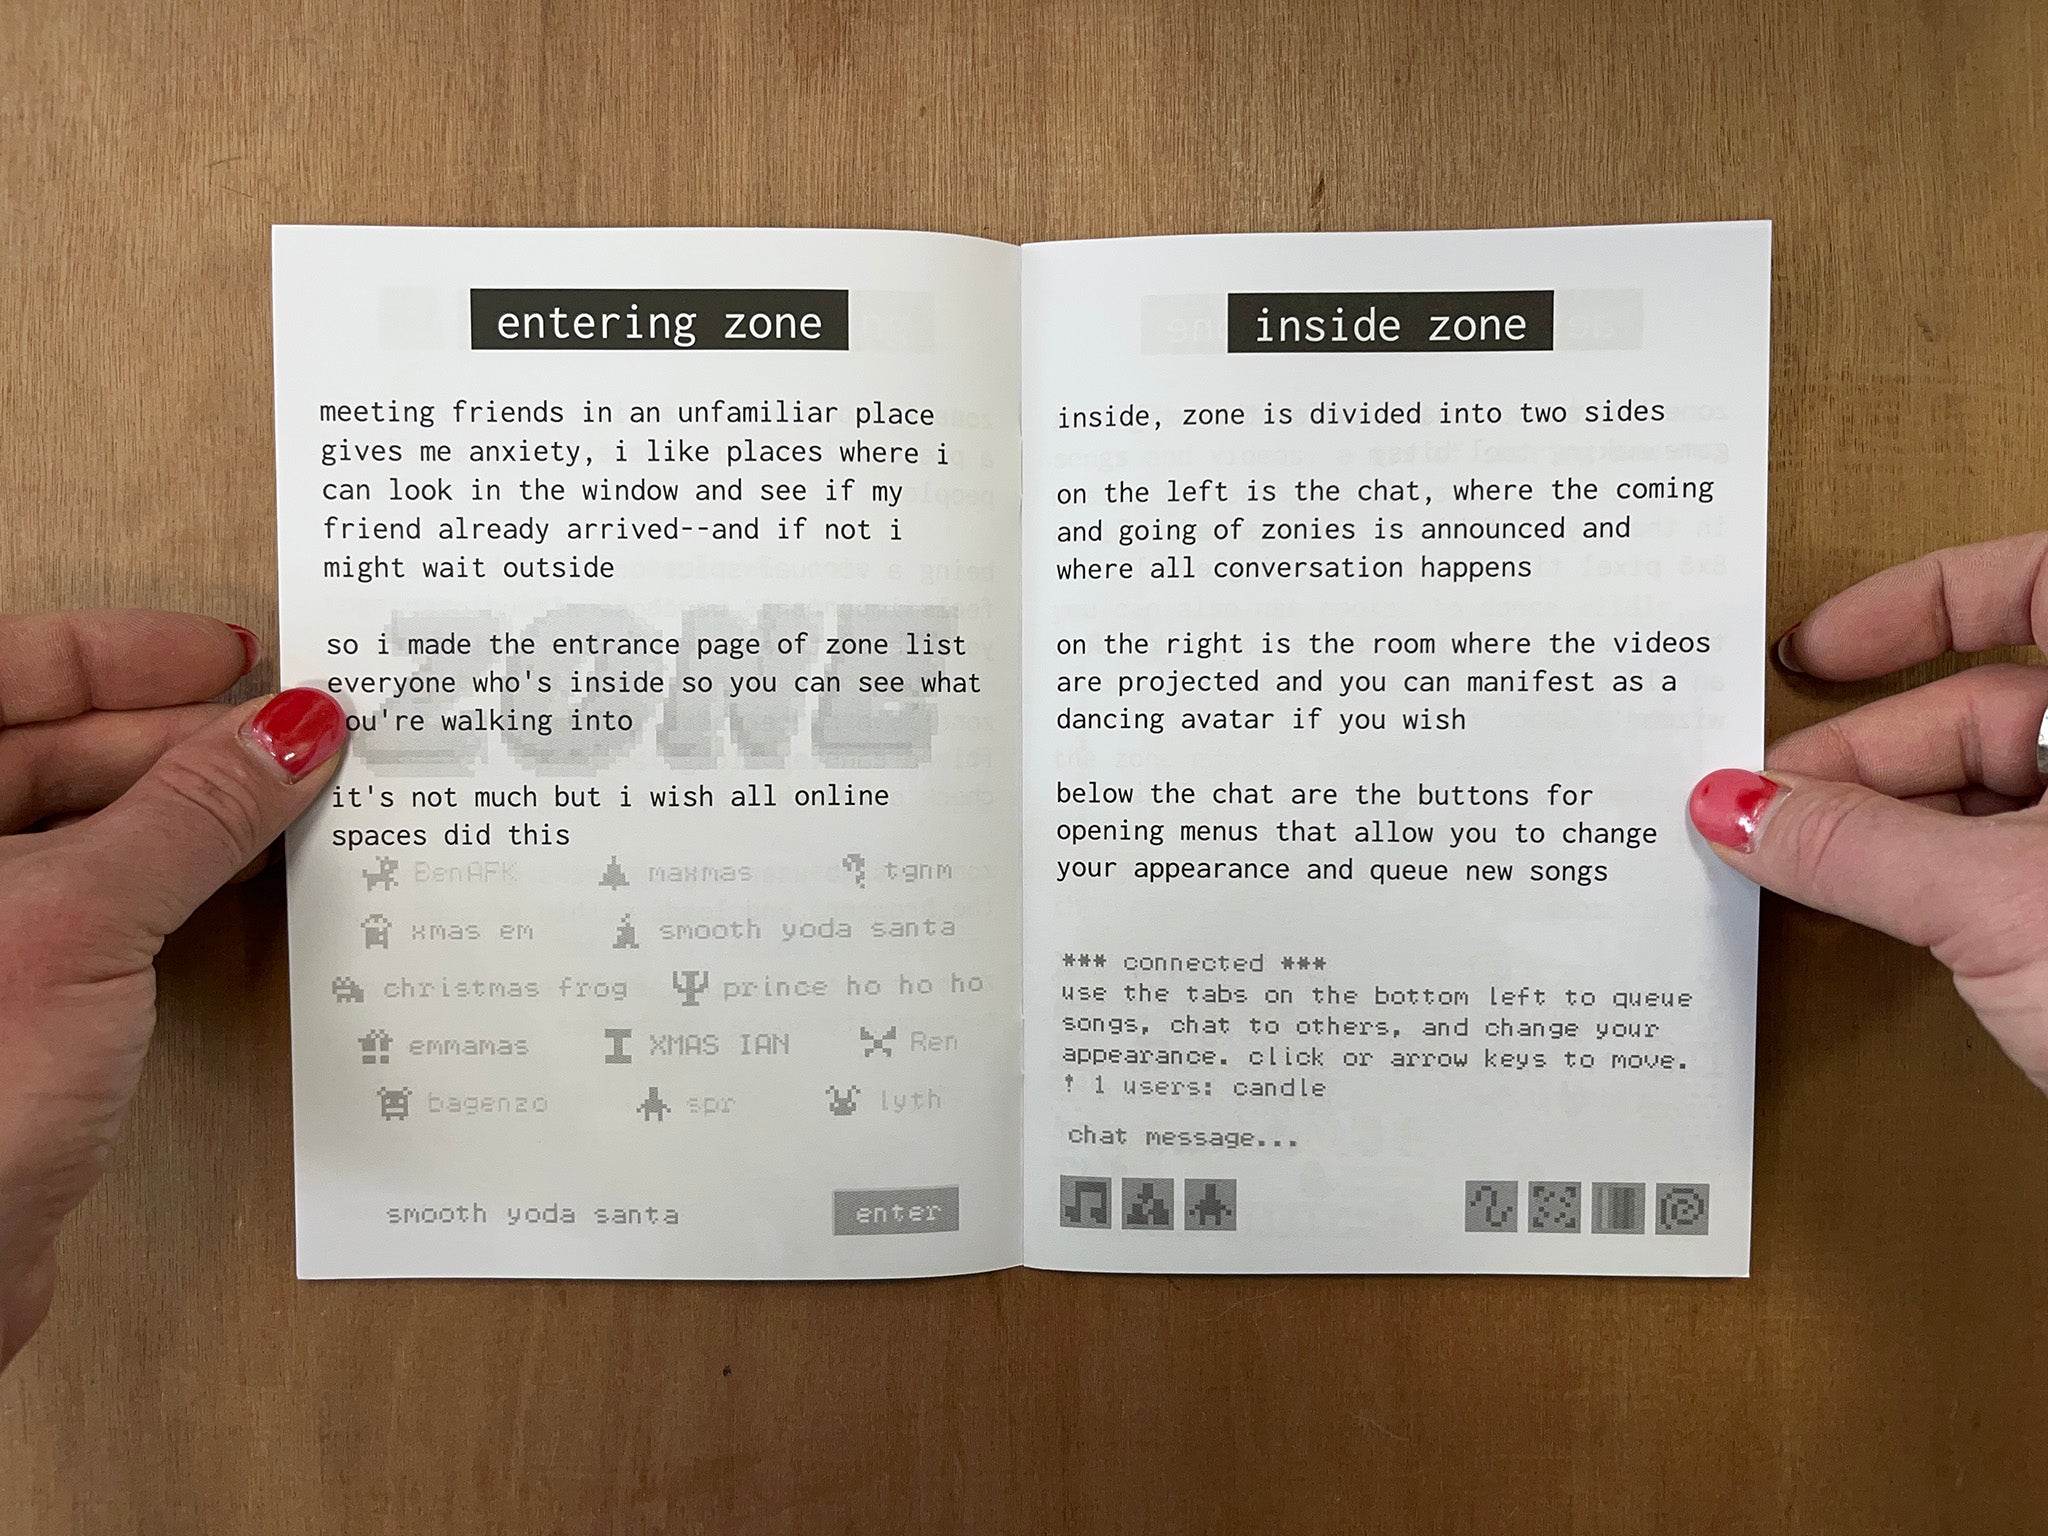 entering zone
meeting friends in an unfamiliar place
gives me anxiety, i like places where i
can look in the window and see if my
friend already arrived--and if not i
might wait outside
ZONE
so i made the entrance page of zone list
everyone who's inside so you can see what
ou're walking into
it's not much but i wish all online
spaces did this
BenAFK maxmas tgnm
xmas em smooth yoda santa
christmas frog prince ho ho ho
emmamas XMAS IAN Ren
bagenzo spr lyth
smooth yoda santa enter
inside zone
inside, zone is divided into two sides
on the left is the chat, where the coming
and going of zonies is announced and
where all conversation happens
on the right is the room where the videos
are projected and you can manifest as a
dancing avatar if you wish
below the chat are the buttons for
opening menus that allow you to change
your appearance and queue new songs
*** connected ***
use the tabs on the bottom left to queue
songs, chat to others, and change your
appearance. click or arrow keys to move.
! 1 users: candle
chat message...